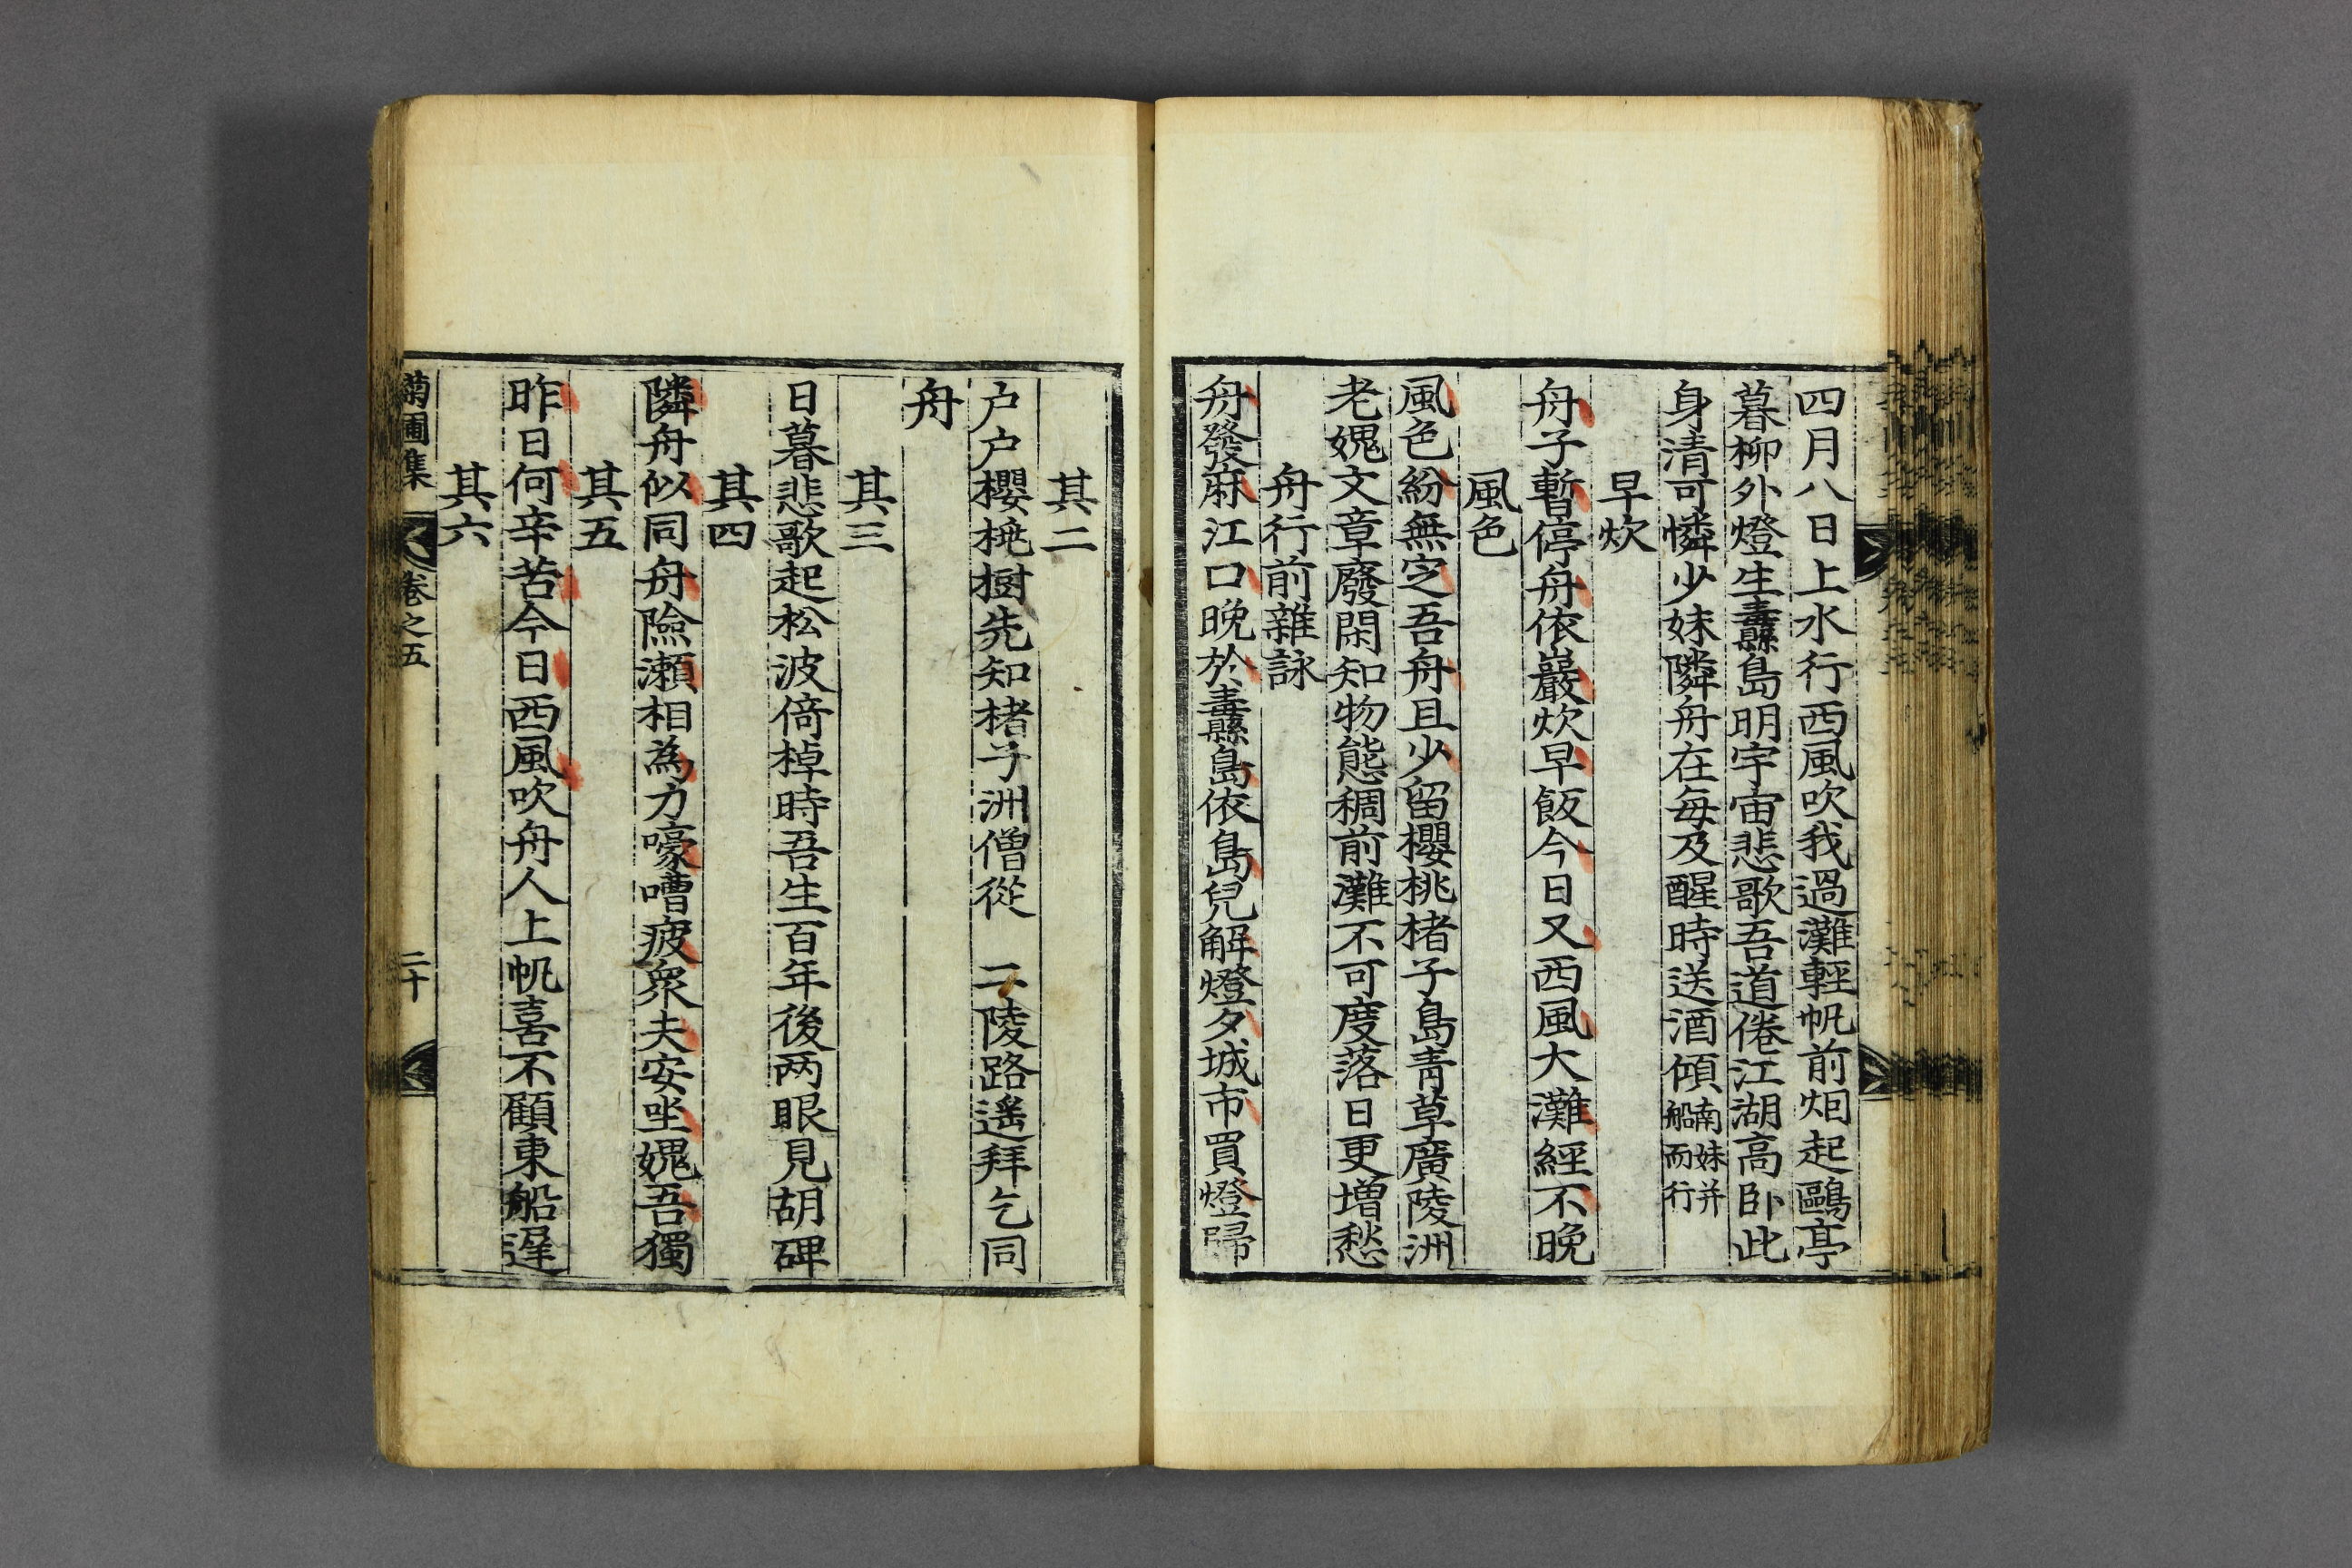 四月八日上水行西風吹我過灘輕帆前烟起鷗亭
暮柳外燈生纛島明宇宙悲歌吾道倦江湖高卧此
身清可憐少妹隣舟在每及醒時送酒傾南妹并船而行
早炊
舟子暫停舟依巖炊早飯今日又西風大灘經不晚
風色
風色紛無定吾舟且少留櫻桃楮子島靑草廣陵洲
老媿文章廢閑知物態稠前灘不可度落日更增愁
舟行前雜詠
舟發麻江口晩於纛島依島兒解燈夕城市買燈歸
其二
户户櫻桃樹先知楮子洲僧從 二陵路遙拜乞同
舟
其三
日暮悲歌起松波倚棹時吾生百年後两眼見胡碑
其四
隣舟似同舟險瀨相為力嚎嘈疲衆夫安坐媿吾獨
其五
昨日何辛苦今日西風吹舟人上帆喜不顧東船遲
其六
菊圃集 卷之五 二十